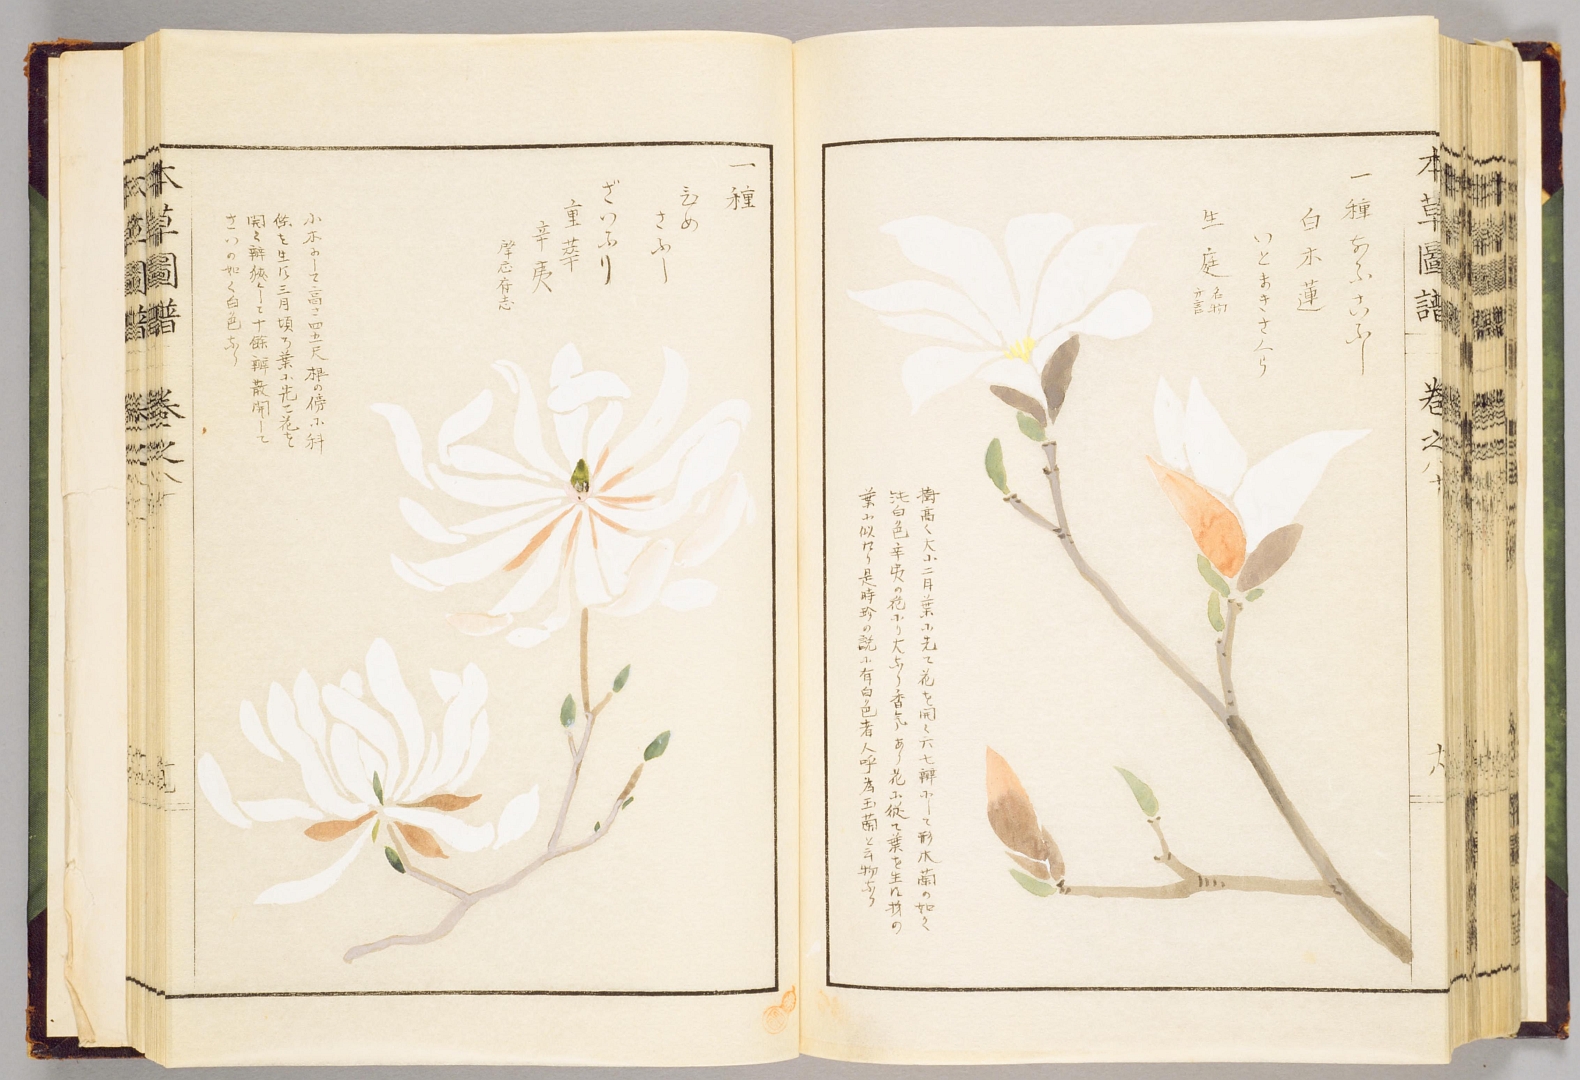 本草圖譜 卷之八十
六
一種 おふこぶし
白木蓮
いとまきざくら
生庭 名物方言
樹高く大に二月葉に先て花を開く六七瓣にして形木蘭の如く
純白色辛夷の花より大なり香気あり花に従て葉を生ず
葉に似たり是時珍の説に有白色者人呼為玉蘭と云物なり
一種
ひめこぶし
ざいふり
重華辛夷
肇慶府志
小木にして高さ四五尺根の傍に科
條を生ず三月頃葉に先て花を
開く瓣狹くして十餘瓣散開して
さいの如く白色なり
本草圖譜 卷之八十